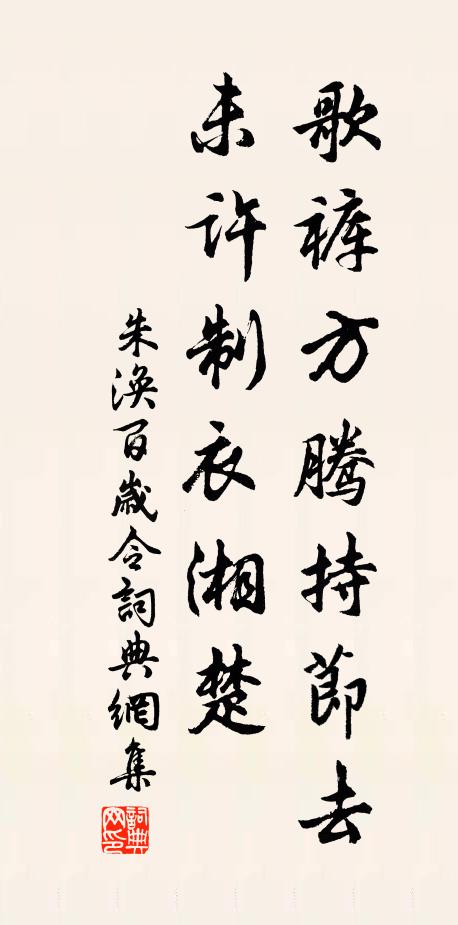 歌裤方腾持節去
未许制衣湘楚
朱涣百歲令詞典網集
詞典网印